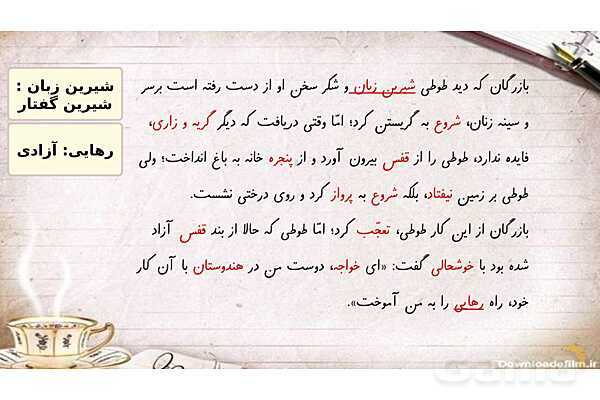 بازرگان که دید طوطی شیرین زبان و شکر سخن او از دست رفته است برسر
و سینه زنان، شروع به گریستن کرد؛ امّا وقتی دریافت که دیگر گریه و زاری،
فایده ندارد، طوطی را از قفس بیرون آورد و از پنجره خانه به باغ انداخت؛ ولی
طوطی بر زمین نیفتاد، بلکه شروع به پرواز کرد و روی درختی نشست.
بازرگان از این کار طوطی، تعجّب کرد؛ امّا طوطی که حالا از بند قفس آزاد
شده بود با خوشحالی گفت: «ای خواجه، دوست من در هندوستان با آن کار
خود، راه رهایی را به من آموخت».
شیرین زبان :
شیرین گفتار
رهایی: آزادی
Downloadefilm.ir